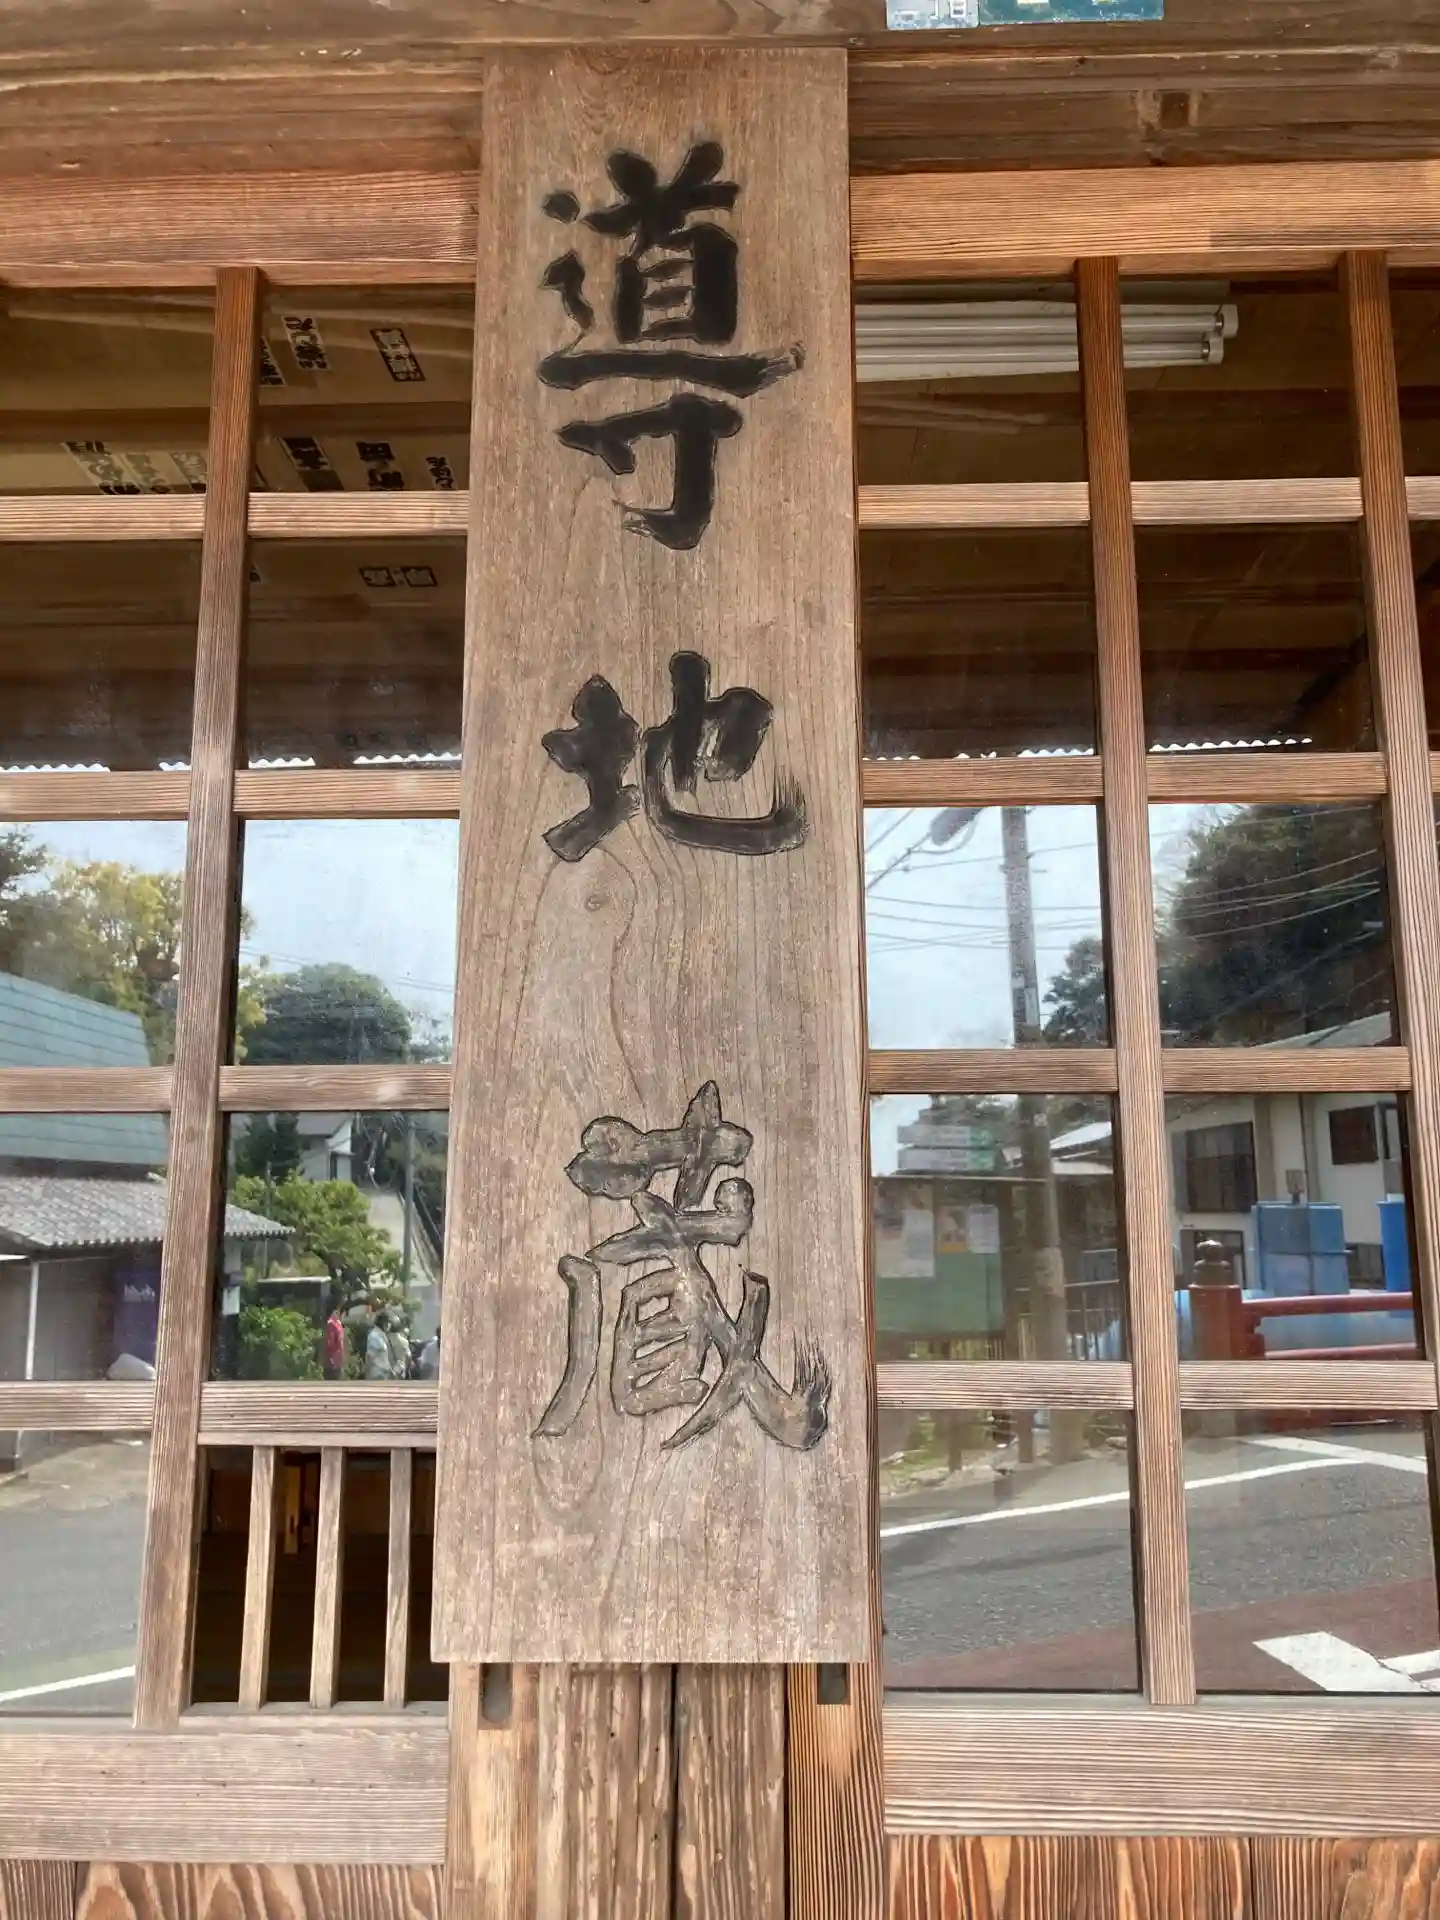 導地蔵